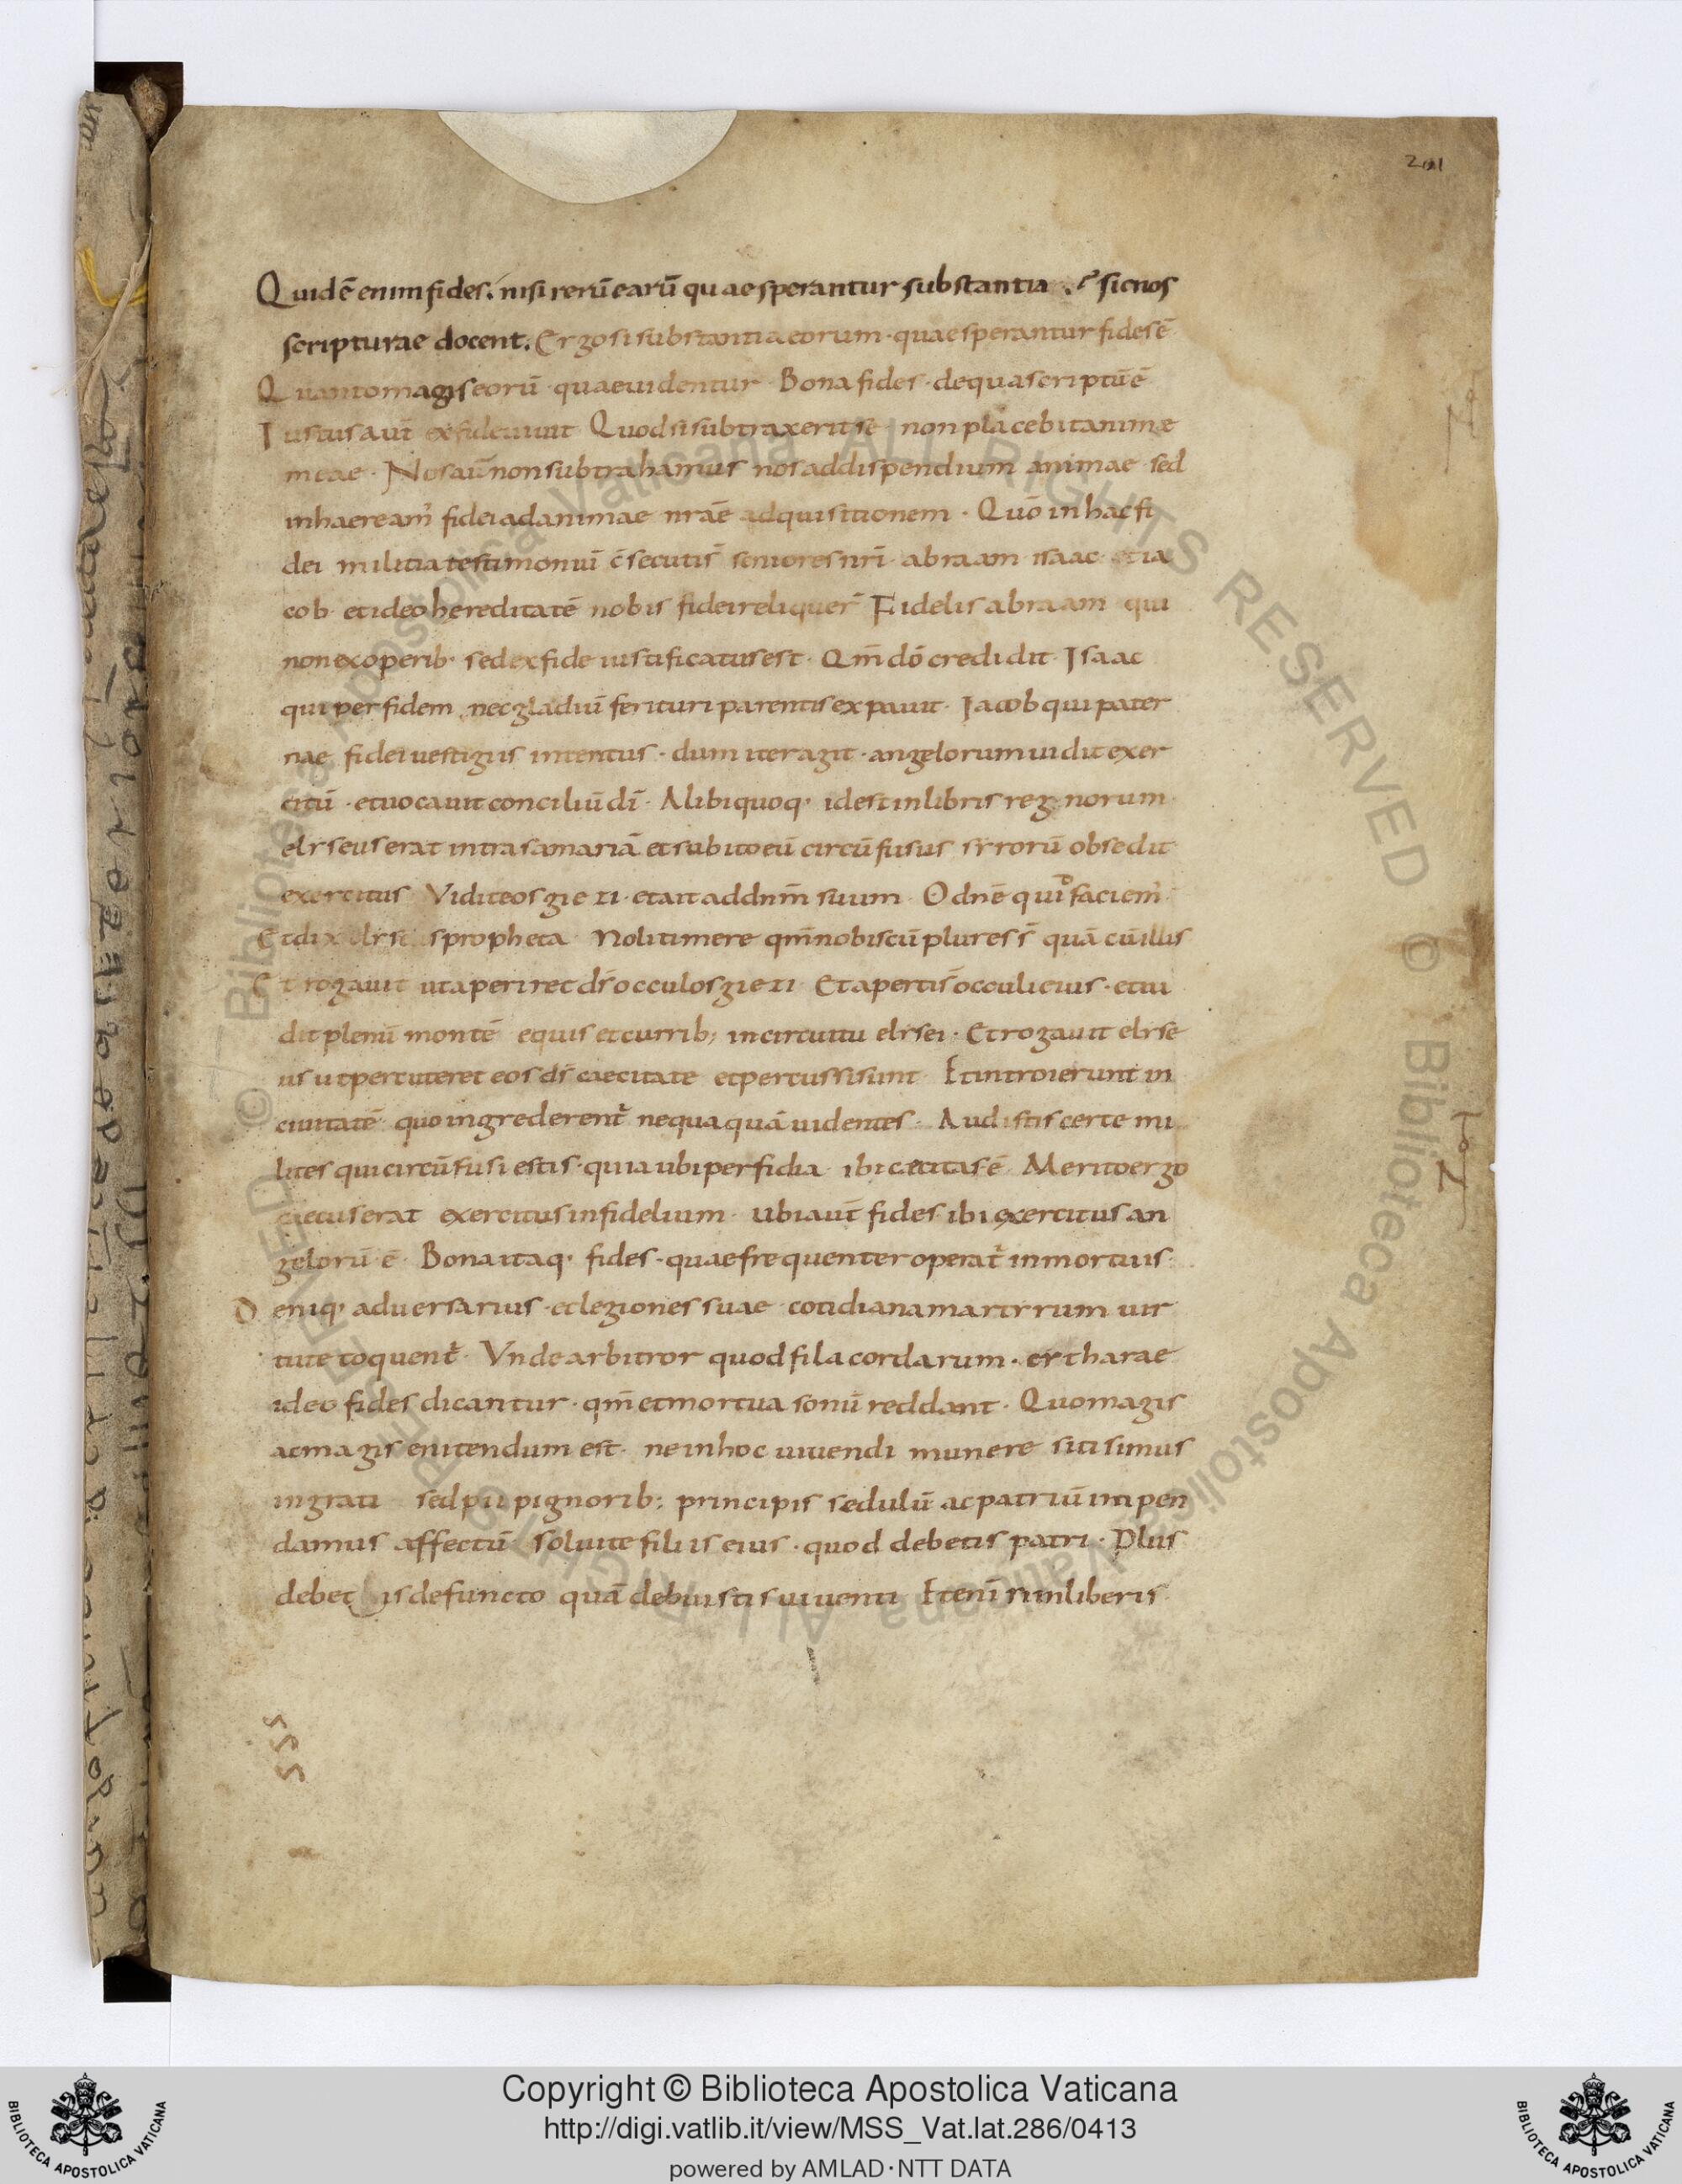 201
Quid ē enim fides. nisi rerū earū quae sperantur substantia .? sic nos
scripturae docent. Ergo si substantia eorum · quae sperantur fides ē
Quanto magis eorū · quae uidentur · Bona fides · de qua scriptū ē
Iustus aut̄ ex fide uiuit Quod si subtraxerit se · non placebit animae
meae · Nos aut̄ non subtrahamus nos ad dispendium animae sed
inhaeream᾽ fidei ad animae nrāe adquisitionem · Quō in hac fi
dei militia testimoniū c̄secuti s̄ seniores nrī · abraam · isaac · et ia
cob · et ideo hereditatē nobis fidei reliquer̄ Fidelis abraam qui
non ex operib· sed ex fide iustificatus est · Qm̄ dō credidit · Isaac
qui per fidem nec gladiū ferituri parentis expauit · Iacob qui pater
nae fidei uestigiis intentus · dum iter agit · angelorum uidit exer
citū · et uocauit conciliū dī · Alibi quoq· id est in libris regnorum
elyseus erat intra samariā et subito eū circūfusus syrorū obsedit
exercitus Vidit eos giezi · et ait ad dnm̄ suum · O dnē quō faciem᾽
Et dix elyseus propheta · Noli timere qm̄ nobiscū plures s̄ quā cū illis
Et rogauit ut aperiret ds̄ occulos giezi Et aperti s̄ occuli eius · et ui
dit plenū montē equis et currib; in circuitu elysei · Et rogauit elyse
us ut percuteret eos ds̄ caecitate et percussi sunt Et introierunt in
ciuitatē quo ingrederent᾽ nequaquā uidentes · Audistis certe mi
lites qui circūfusi estis · quia ubi perfidia · ibi cecitas ē · Merito ergo
caecus erat exercitus infidelium · ubi aut̄ fides · ibi exercitus an
gelorū ē · Bona itaq· fides · quae frequenter operat᾽ in mortuis ·
Deniq· aduersarius · et legiones suae · cotidiana martyrum uir
tute toquent᾽ · Vnde arbitror quod fila cordarum · cytharae
ideo fides dicantur · qm̄ et mortua sonū reddant · Quo magis
ac magis enitendum est · ne in hoc uiuendi munere siti simus
ingrati sed pii pignorib; principis sedulū ac patriū impen
damus affectū soluite filiis eius · quod debetis patri · Plus
debetis defuncto quā debuistis uiuenti Etenī si in liberis
sss
© Biblioteca Apostolica Vaticana ALL RIGHTS RESERVED
Copyright © Biblioteca Apostolica Vaticana
http://digi.vatlib.it/view/MSS_Vat.lat.286/0413
powered by AMLAD·NTT DATA
BIBLIOTECA APOSTOLICA VATICANA
BIBLIOTECA APOSTOLICA VATICANA